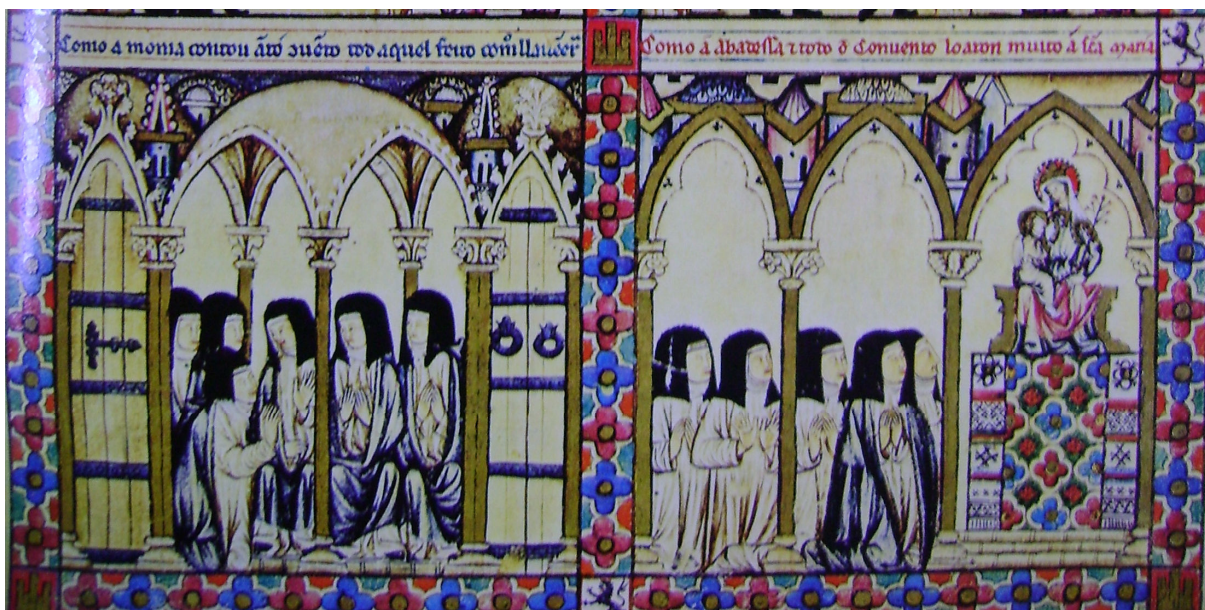 Como a monia contou ãte ɔuẽto tod aquel feito
Como á Abadessa ⁊ todo o Conuento loaron muito á sc̃a maria